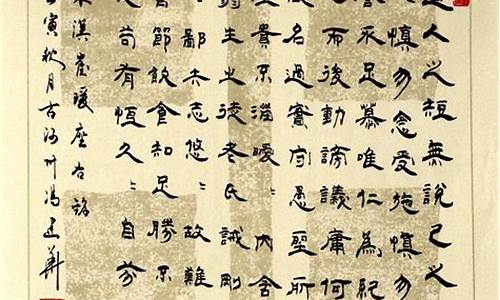 道人之短無說己之
慎勿念受施慎勿
不足慕唯仁為紀
而後動謗議庸何
名過實守愚聖所
貴不淄曖〻內含
弱生之徒老氏誡剛
〻鄙夫志悠〻故難
節飲食知足勝不
之苟有恆久〻自芬
漢崔瑗座右銘
寅秋月古州馮